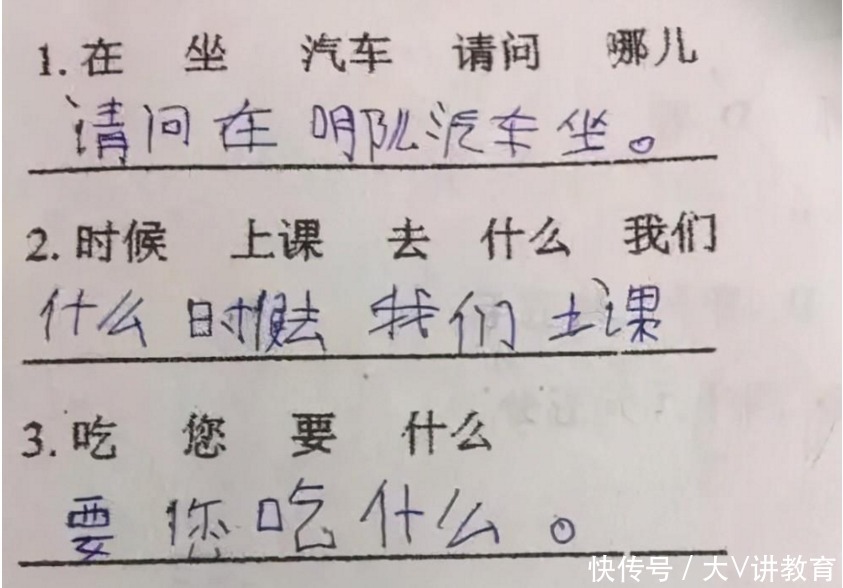 1. 在 坐 汽车 请问 哪儿
请问在哪儿汽车坐。
2. 时候 上课 去 什么 我们
什么时候去我们上课
3. 吃 您 要 什么
要您吃什么。
快传号 / 大V讲教育